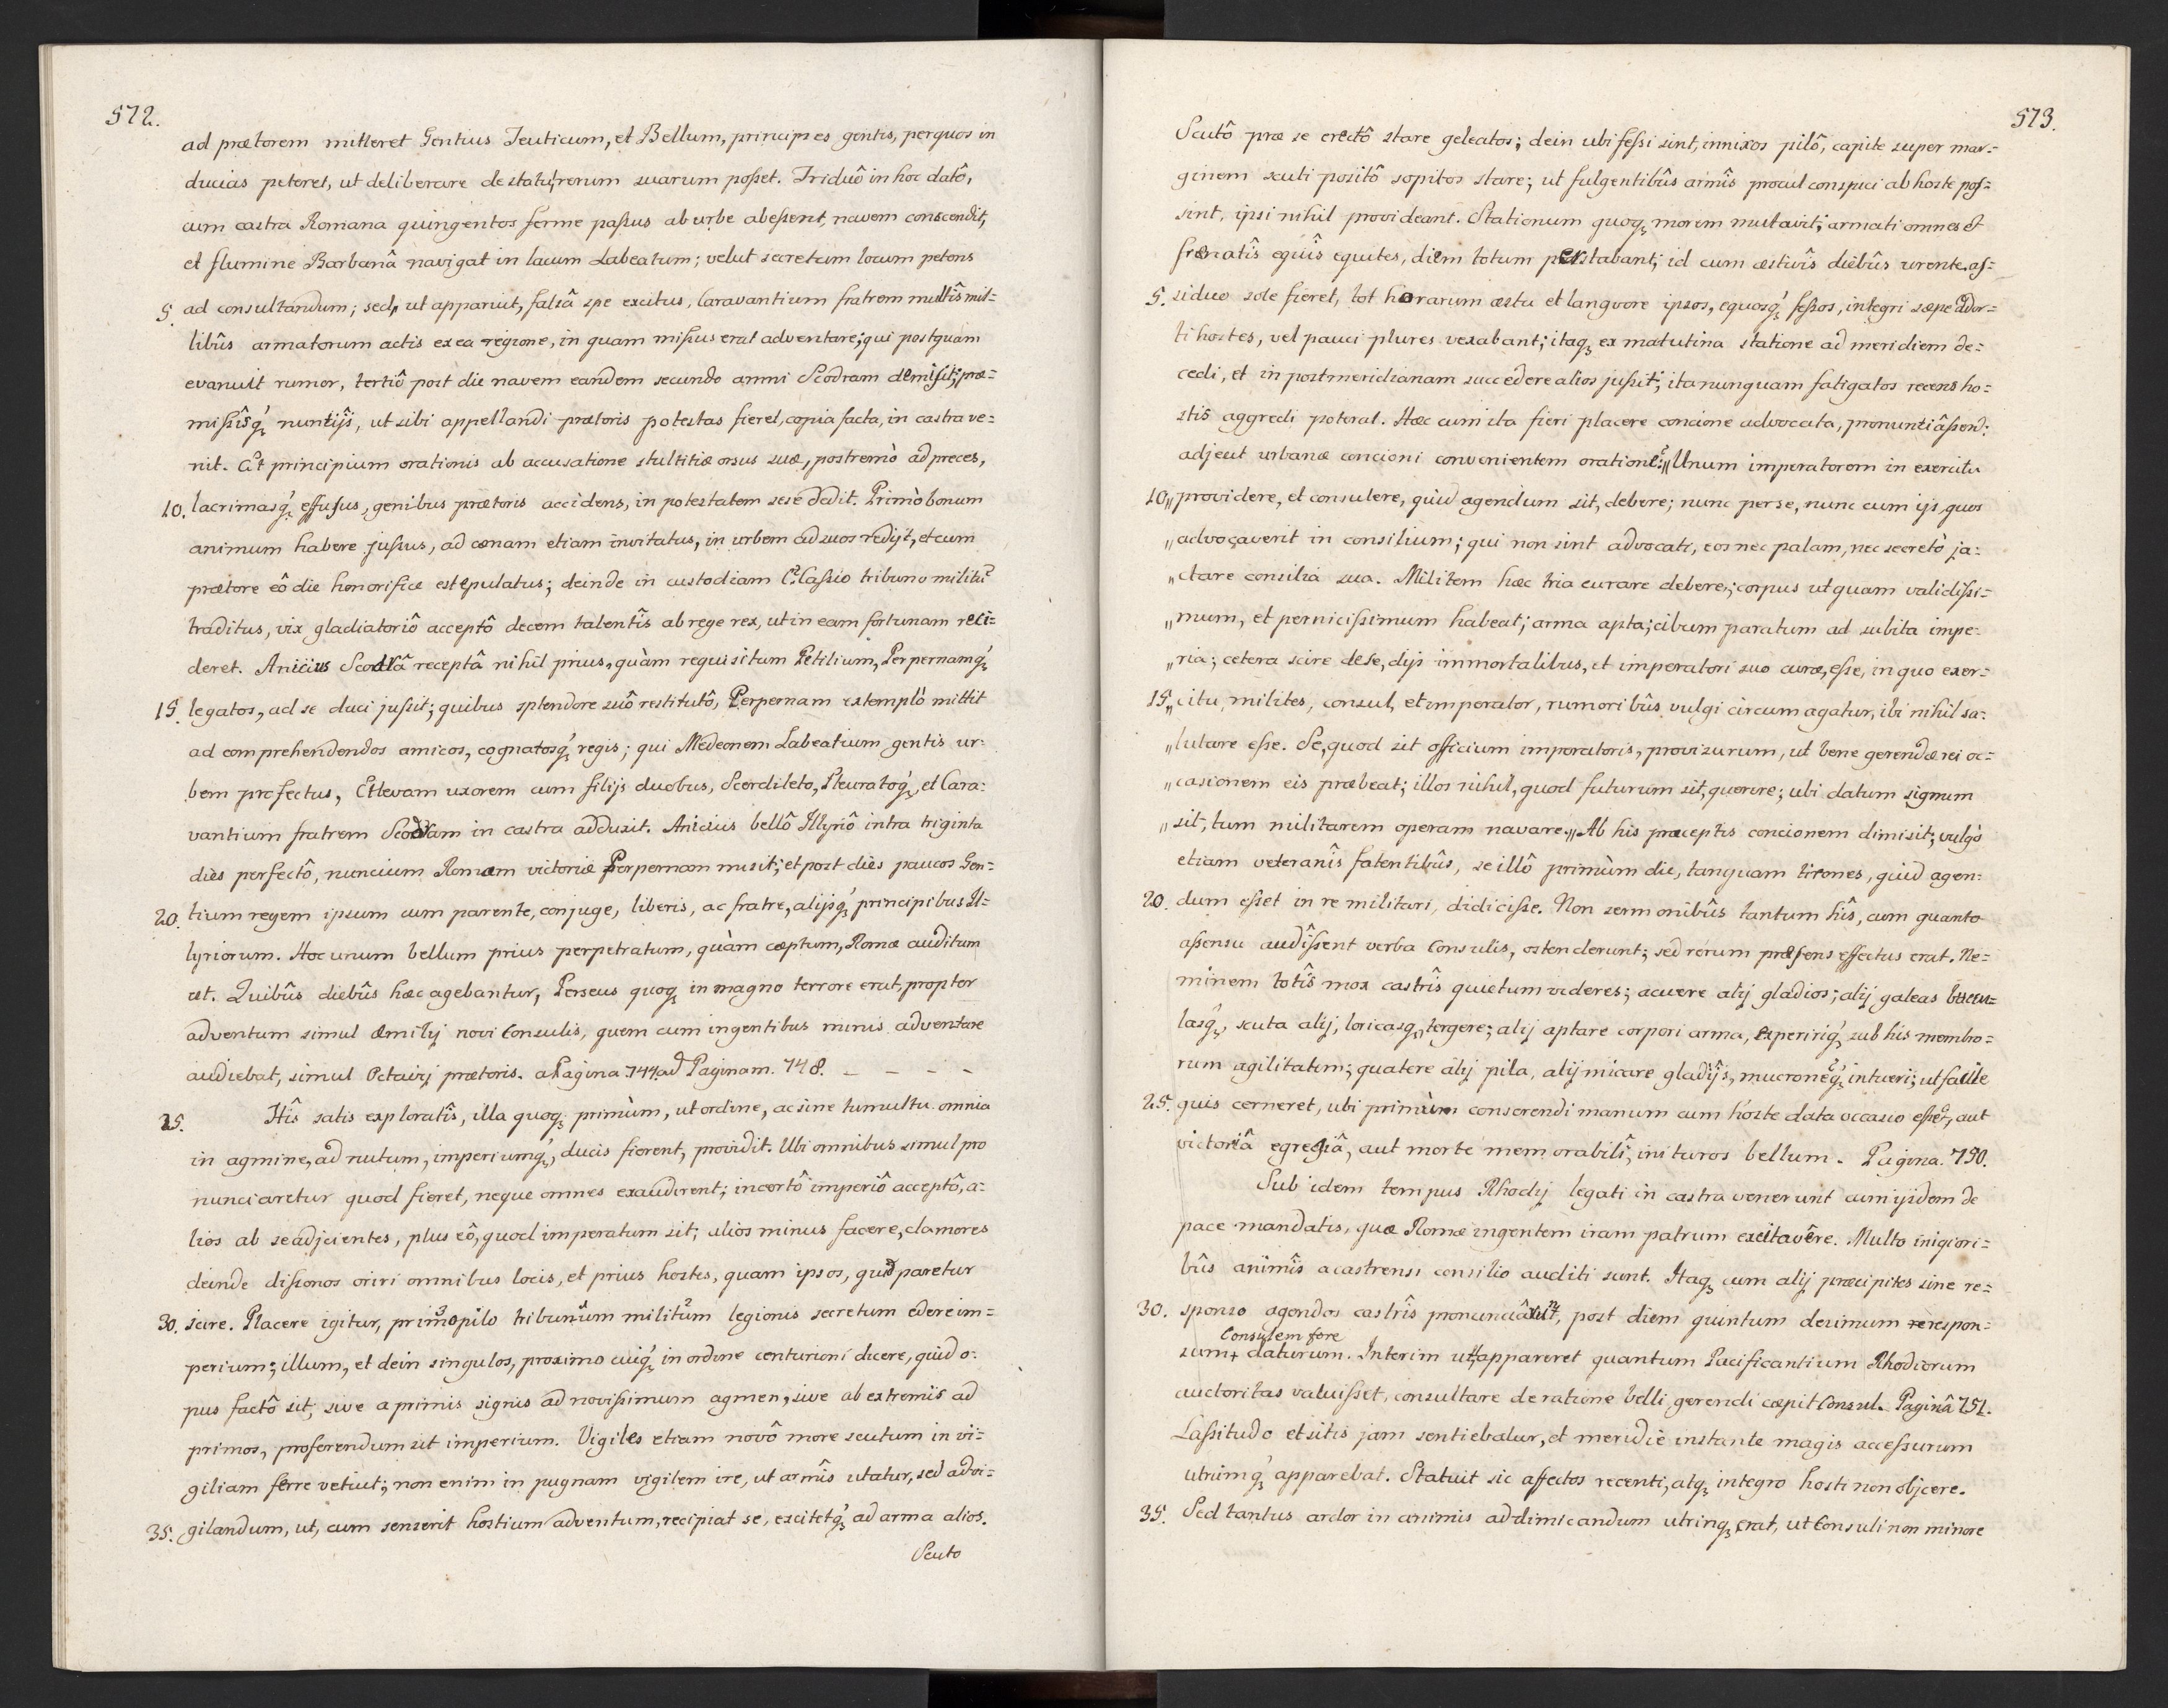 572.
ad prætorem mitteret Gentius Teuticum, et Bellum, principes gentis, perquos in
ducias peteret, ut deliberare de statu, rerum suarum posset. Triduô in hoc datô,
cum castra Romana quingentos ferme passus ab urbe abessent, navem conscendit,
et flumine Barbanâ navigat in lacum Labeatum; velut secretum locum petens
5. ad consultandum; sed, ut apparuit, falsâ spe excitus, Caravantium fratrem multîs mil=
libûs armatorum actis ex ea regione, in quam missus erat adventare; qui postquam
evanuit rumor, tertiô post die navem eandem secundo amni Scodram demisit; præ=
missîsq́ꝫ nuntijs, ut sibi appellandi prætoris potestas fieret, copia facta, in castra ve=
nit. Et principium orationis ab accusatione stultitiæ orsus suæ, postremò ad preces,
10. lacrimasq́ꝫ effusus, genibus prætoris accidens, in potestatem sese dedit. Primò bonum
animum habere jussus, ad cœnam etiam invitatus, in urbem ad suos redijt, et cum
prætore eô die honorifice est epulatus; deinde in custodiam C. Cassio tribuno militũ
traditus, vix gladiatoriô acceptô decem talentîs ab rege rex, ut in eam fortunam reci=
deret. Anicius Scodrâ receptâ nihil prius, quàm requisitum Petilium, Perpernamq́ꝫ
15. legatos, ad se duci jussit; quibus splendore suô restitutô, Perpernam extemplò mittit
ad comprehendendos amicos, cognatosq́ꝫ regis; qui Medeonem Labeatium gentis ur=
bem profectus, Etlevam uxorem cum filijs duobus, Scerdileto, Pleuratoq́ꝫ, et Cara=
vantium fratrem Scodram in castra adduxit. Anicius bellô Illyriô intra triginta
dies perfectô, nuncium Romam victoriæ Perpernam misit; et post dies paucos Gen=
20. tium regem ipsum cum parente, conjuge, liberis, ac fratre, alijsq́ꝫ principibus Il=
lyriorum. Hoc unum bellum prius perpetratum, quàm cœptum, Romæ auditum
est. Quibûs diebûs hæc agebantur, Perseus quoqꝫ in magno terrore erat, propter
adventum simul Æmilij novi Consulis, quem cum ingentibus minis adventare
audiebat, simul Octavij prætoris. a Pagina 744. ad Paginam. 748. – – – –
25. Hîs satis exploratîs, illa quoqꝫ primùm, ut ordine, ac sine tumultu omnia
in agmine, ad nutum, imperiumq́ꝫ, ducis fierent, providit. Ubi omnibus simul pro
nunciaretur quod fieret, neque omnes exaudirent; incertô imperiô acceptô, a=
lios ab se adjcientes, plus eô, quod imperatum sit; alios minus facere, clamores
deinde dissonos oriri omnibus locis, et prius hostes, quam ipsos, quid paretur
30. scire. Placere igitur, primopilo tribunum militum legionis secretum edere im=
perium; illum, et dein singulos, proximo cuiq́ꝫ in ordine centurioni dicere, quid o=
pus factô sit; sive a primis signis ad novissimum agmen, sive ab extremis ad
primos, proferendum sit imperium. Vigiles etiam novô more scutum in vi=
giliam ferre vetuit; non enim in pugnam vigilem ire, ut armîs utatur, sed ad vi=
35. gilandum, ut, cum senserit hostium adventum, recipiat se, excitetq́ꝫ ad arma alios.
Scuto
573.
Scutô præ se erectô stare geleatos; dein ubi fessi sint, innixos pilô, capite super mar=
ginem scuti positô sopitos stare; ut fulgentibûs armîs procul conspici ab hoste pos=
sint, ipsi nihil provideant. Stationum quoqꝫ morem mutavit; armati omnes et
frænatîs equîs equites, diem totum perstabant; id cum æstivîs diebûs urente as=
5. siduo sole fieret, tot horarum æstu et languore ipsos, equosq́ꝫ fessos, integri sæpe ador=
ti hostes, vel pauci plures vexabant; itaqꝫ ex matutina statione ad meridiem de=
cedi, et in postmeridianam succedere alios jussit; ita nunquam fatigatos recens ho=
stis aggredi poterat. Hæc cum ita fieri placere concione advocata, pronuntiâssend:
adjecit urbanæ concioni convenientem orationẽ: „Unum imperatorem in exercitu
10. „providere, et consulere, quid agendum sit, debere; nunc per se, nunc cum ijs, quos
„advocaverit in consilium; qui non sint advocati, eos nec palam, nec secretò ja=
„ctare consilia sua. Militem hæc tria curare debere; corpus ut quam validissi=
„mum, et pernicissimum habeat; arma apta; cibum paratum ad subita impe=
„ria; cetera scire de se, dijs immortalibus, et imperatori suo curæ, esse, in quo exer=
15. „citu milites, consul, et imperator, rumoribûs vulgi circumagatur, ibi nihil sa=
„lutare esse. Se, quod sit officium imperatoris, provisurum, ut bene gerendæ rei oc=
„casionem eis præbeat; illos nihil, quod futurum sit, querere; ubi datum signum
„sit, tum militarem operam navare.„ Ab his præceptis concionem dimisit; vulgò
etiam veteranîs fatentibûs, se illô primùm die, tanquam tirones, quid agen=
20. dum esset in re militari, didicisse. Non sermonibûs tantum hîs, cum quanto
assensu audîssent verba Consulis, ostenderunt; sed rerum præsens effectus erat. Ne=
minem totîs mox castrîs quietum videres; acuere alij gladios; alij galeas buccu=
lasq́ꝫ, scuta alij, loricasqꝫ, tergere; alij aptare corpori arma, expeririq́ꝫ sub his membro=
rum agilitatem; quatere alij pila, alij micare gladijs, mucronẽq́ꝫ intueri; ut facile
25. quis cerneret, ubi primùm conserendi manum cum hoste data occasio esset, aut
victoriâ egregiâ, aut morte memorabilî, inituros bellum. Pagina. 750.
Sub idem tempus Rhodij legati in castra venerunt cum ijsdem de
pace mandatis, quæ Romæ ingentem iram patrum excitavêre. Multo iniqiori=
bûs animîs a castrensi consilio auditi sunt. Itaqꝫ cum alij præcipites sine re=
30. sponso agendos castrîs pronunciârunt, post diem quintum decimum rerespon=
Consulem fere
sum + daturum. Interim ut, appareret quantum Pacificantium Rhodiorum
auctoritas valuisset, consultare de ratione belli gerendi cœpit Consul. Paginâ 751.
Lassitudo et sitis jam sentiebatur, et meridie instante magis accessurum
utrumq́ꝫ apparebat. Statuit sic affectos recenti, atqꝫ integro hosti non objcere.
35. Sed tantus ardor in animis ad dimicandum utrinqꝫ erat, ut Consuli non minore